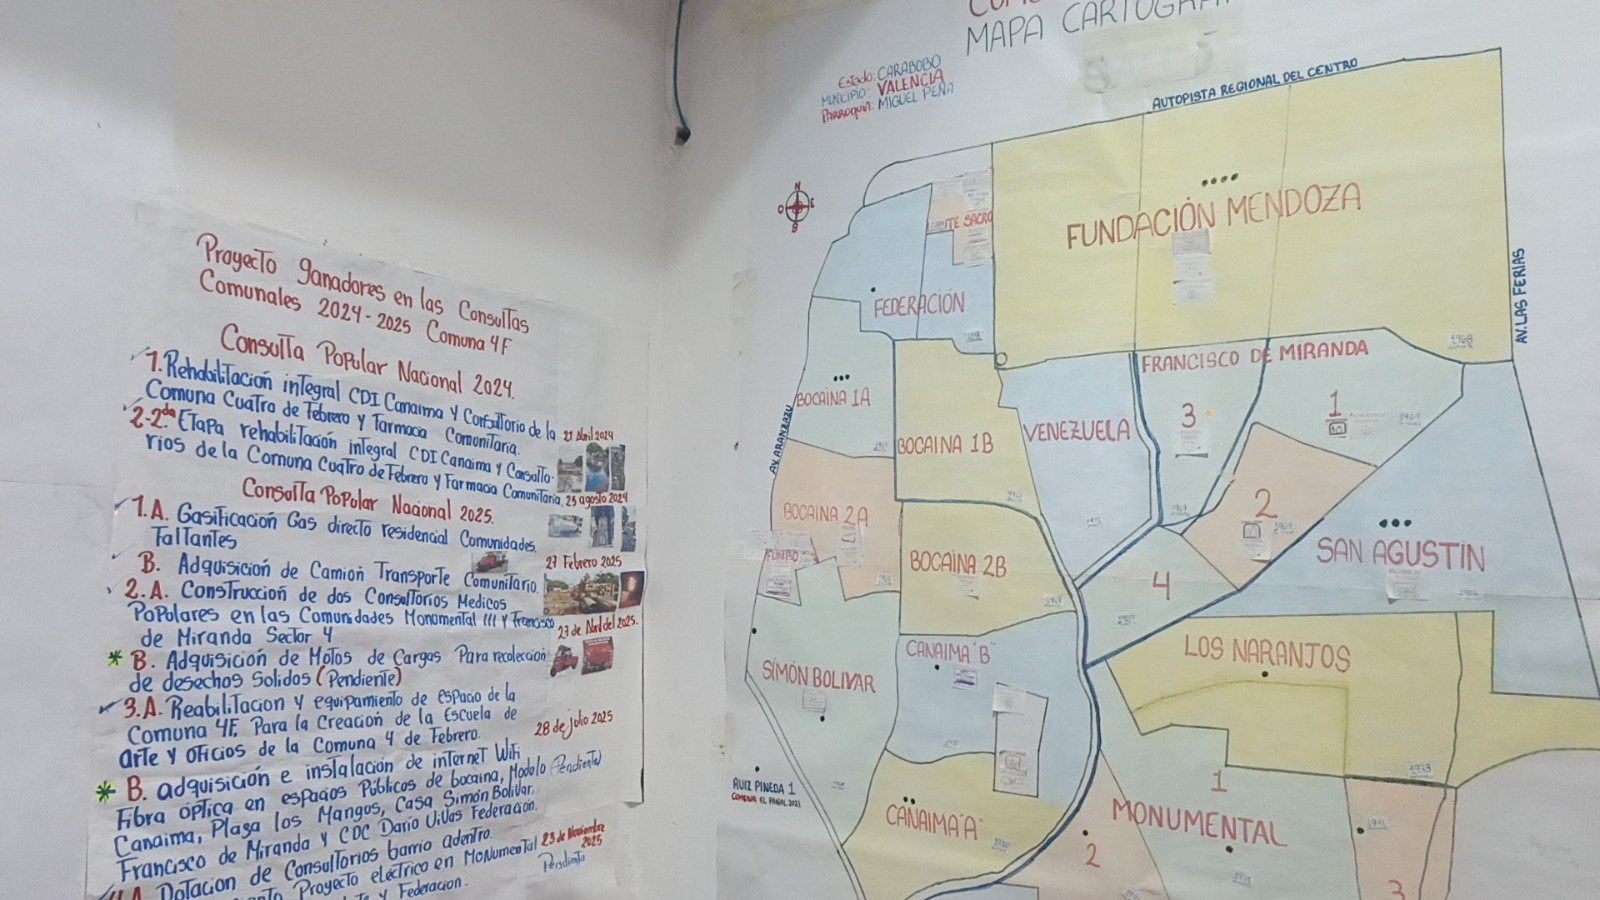 Proyecto ganadores en las Consultas
Comunales 2024-2025 Comuna 4F
Consulta Popular Nacional 2024.
1. Rehabilitación integral CDI Canaima y Consultorio de la
Comuna Cuatro de Febrero y Farmacia Comunitaria.
21 Abril 2024
2-2.da Etapa rehabilitación integral CDI Canaima y Consulto-
rios de la Comuna Cuatro de Febrero y Farmacia Comunitaria.
25 agosto 2024
Consulta Popular Nacional 2025.
1.A. Gasificación Gas directo residencial Comunidades.
Faltantes
B. Adquisicion de Camión Transporte Comunitario.
27 Febrero 2025
2.A. Construccion de dos Consultorios Medicos
Populares en las Comunidades Monumental III y Francisco
de Miranda Sector 4
27 de Abril del 2025.
* B. Adquisición de Motos de Cargas Para recolección
de desechos Solidos (Pendiente)
3.A. Reabilitacion y equipamiento de espacio de la
Comuna 4F. Para la Creacion de la Escuela de
arte y oficios de la Comuna 4 de Febrero.
28 de julio 2025
* B. adquisición e instalación de internet Wifi
Fibra óptica en espacios Públicos de bocaina, Modulo (Pendiente)
Canaima, Plaza los Mangos, Casa Simón Bolívar.
Francisco de Miranda y CDC Dario Vivas Federación.
4.A. Dotacion de Consultorios barrio adentro.
23 de Noviembre
2025
Pendiente
Proyecto eléctrico en Monumental
y Federacion.
MAPA
Estado: CARABOBO
MUNICIPIO: VALENCIA
Parroquia: MIGUEL PEÑA
AUTOPISTA REGIONAL DEL CENTRO
N
O E
S
FUNDACIÓN MENDOZA
1968
AV. LAS FERIAS
FEDERACIÓN
FRANCISCO DE MIRANDA
3
1
2
4
BOCAINA 1A
BOCAINA 1B
VENEZUELA
AV. ARANZAZU
BOCAINA 2A
BOCAINA 2B
SAN AGUSTIN
SIMÓN BOLIVAR
CANAIMA "B"
LOS NARANJOS
1973
RUIZ PINEDA 1
COMUNA EL PANAL 2021
CANAIMA "A"
1
MONUMENTAL
2
3